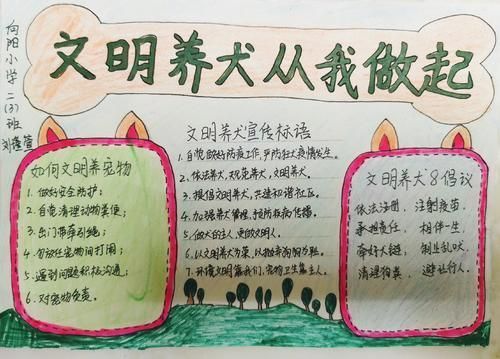 向阳小学二(3)班
文明养犬从我做起
如何文明养宠物
1.做好安全防护；
2.自觉清理动物粪便；
3.出门带牵引绳；
4.勿放任宠物间打闹；
5.遇到问题积极沟通；
6.对宠物负责。
文明养犬宣传标语
1.自觉做好防疫工作，严防狂犬疫情发生。
2.依法养犬，规范养犬，文明养犬。
3.提倡文明养犬，共建和谐社区。
4.加强养犬管理，控防疾病传播。
5.做犬的主人，更做文明人。
6.以文明养犬为荣，以抛弃狗狗为耻。
7.环境文明靠我们，宠物卫生靠主人。
文明养犬8倡议
依法注册，注射疫苗，
承担责任，相伴一生
牵好犬链，制止乱吠，
清理狗粪，避让行人。